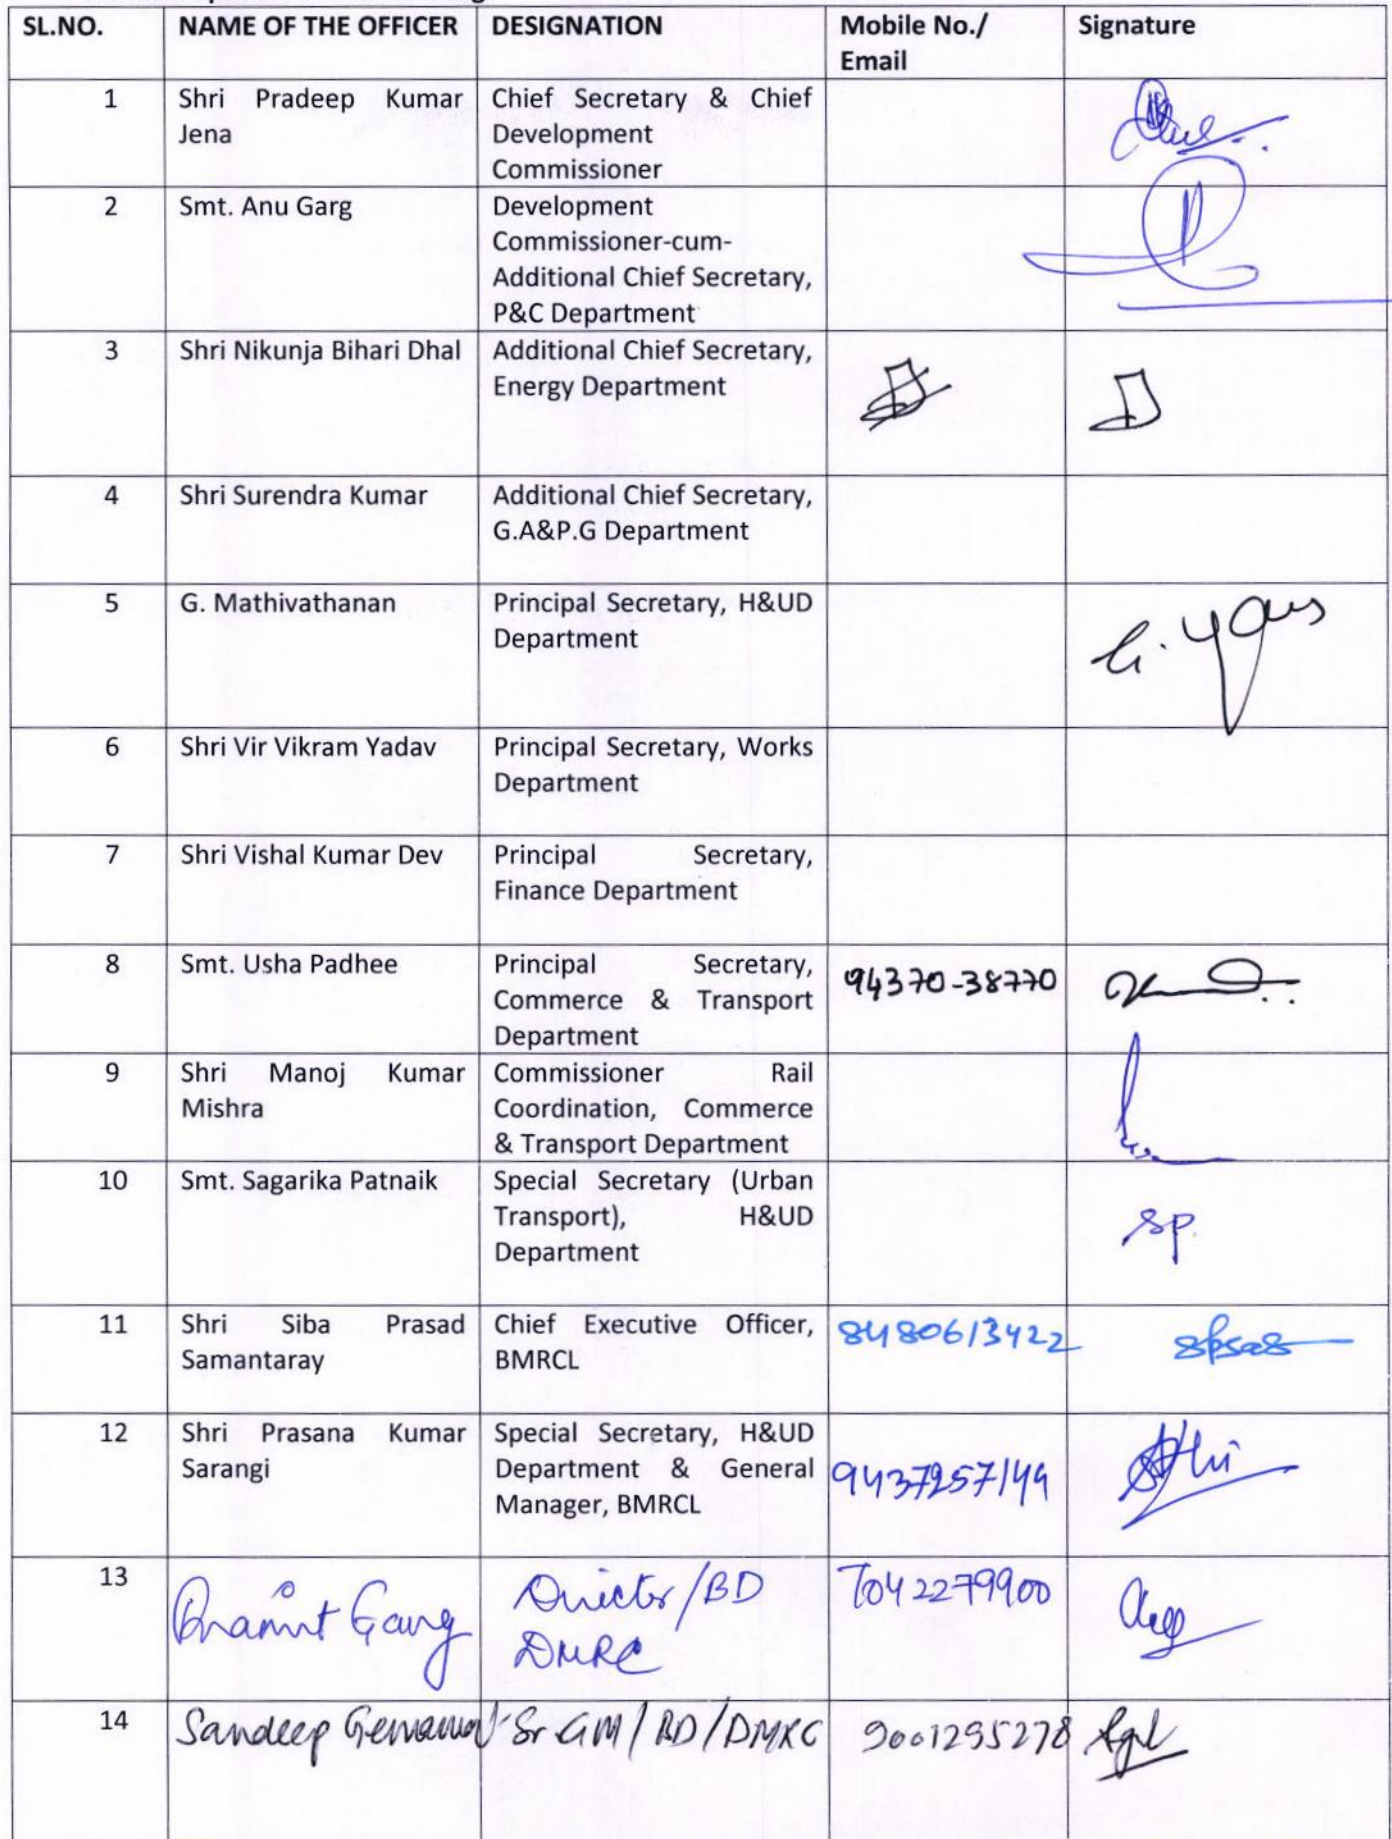 SL.NO. NAME OF THE OFFICER DESIGNATION Mobile No./ Signature
Email
1 Shri Pradeep Kumar Chief Secretary & Chief
Jena Development
Commissioner
2 Smt. Anu Garg Development
Commissioner-cum-
Additional Chief Secretary,
P&C Department
3 Shri Nikunja Bihari Dhal Additional Chief Secretary,
Energy Department
4 Shri Surendra Kumar Additional Chief Secretary,
G.A&P.G Department
5 G. Mathivathanan Principal Secretary, H&UD
Department
6 Shri Vir Vikram Yadav Principal Secretary, Works
Department
7 Shri Vishal Kumar Dev Principal Secretary,
Finance Department
8 Smt. Usha Padhee Principal Secretary, 94370-38770
Commerce & Transport
Department
9 Shri Manoj Kumar Commissioner Rail
Mishra Coordination, Commerce
& Transport Department
10 Smt. Sagarika Patnaik Special Secretary (Urban
Transport), H&UD SP.
Department
11 Shri Siba Prasad Chief Executive Officer, 8480613422
Samantaray BMRCL
12 Shri Prasana Kumar Special Secretary, H&UD
Sarangi Department & General 9437257149
Manager, BMRCL
13 Garg Director/BD 7042279900
DMRC
14 Sandeep Sr GM/BD/DMRC 9001295278